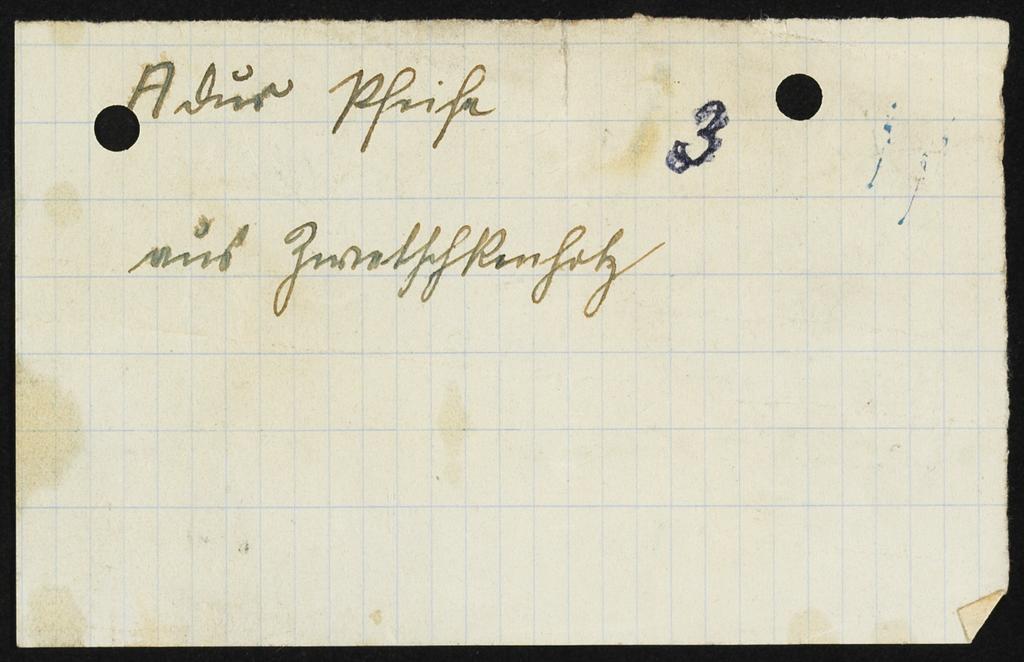 A dur Pfeife 3
aus Zwetschkenholz